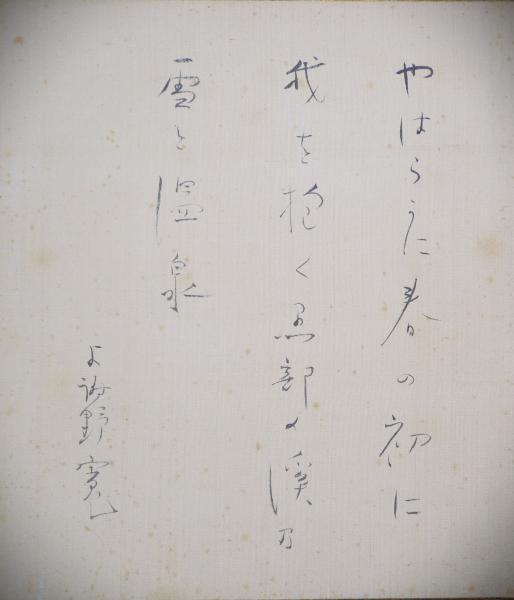 やはらかに春の初に
我を抱く黒部の渓乃
雪と温泉
与謝野寛